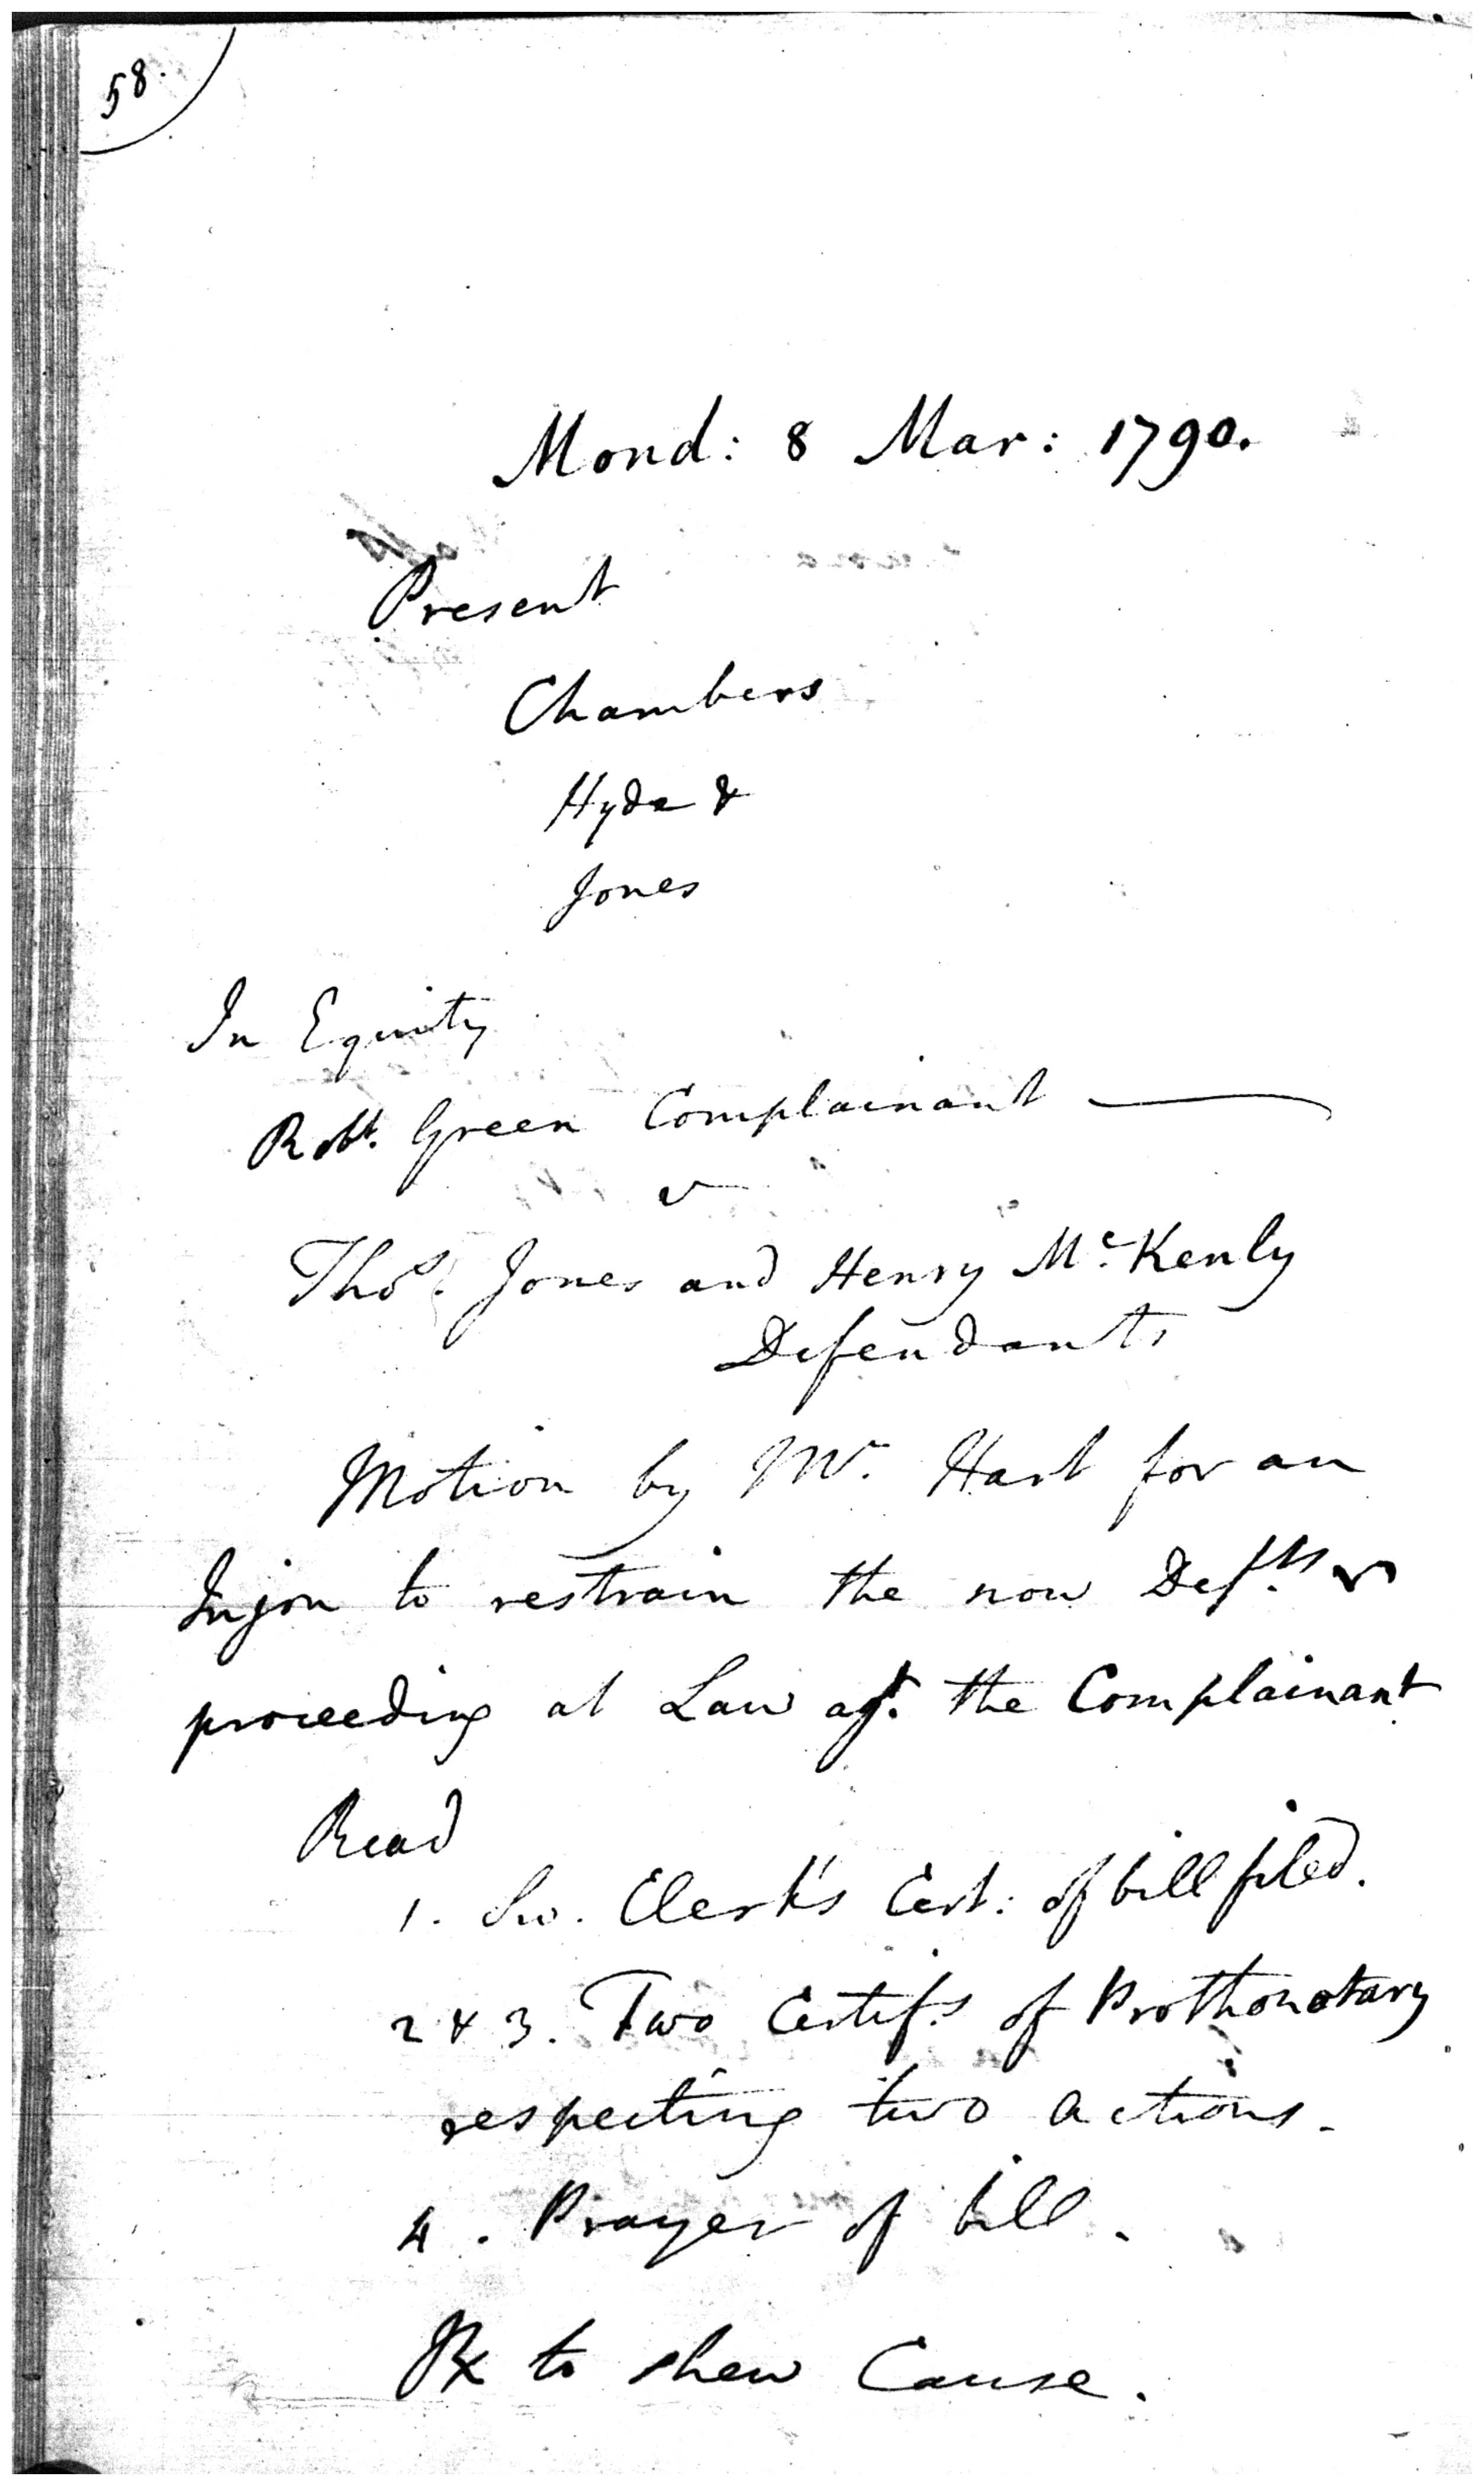 58.
Mond: 8 Mar: 1790.
Present
Chambers
Hyde &
Jones
In Equity
Robt. Green Complainant
v
Thos. Jones and Henry Mc.Kenly
Defendants
Motion by Mr. Hart for an
Injon to restrain the now Defts.
proceeding at Law agt. the Complainant
Read
1. Sw. Clerk's Cert: of bill filed.
2 & 3. Two Certifs. of Prothonotary
respecting two actions.
4. Prayer of bill.
Rx to shew Cause.